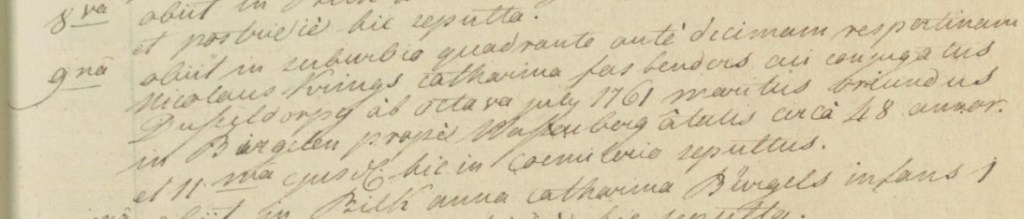 8va obiit in Bilk
et postridiè hic sepulta.
9nâ obiit in suburbio quadrante antè decimam vespertinam
Nicolaus Krings Catharina fasbenders cui conjugatus
Dusseldorpy ab octava july 1761 maritus oriundus
in Birgelen propè Wassenberg ætatis circà 48 annor.
et 11ma ejusd. hic in coemiterio sepultus.
obiit in Bilk anna catharina Bürgels infans 1
hic sepulta.